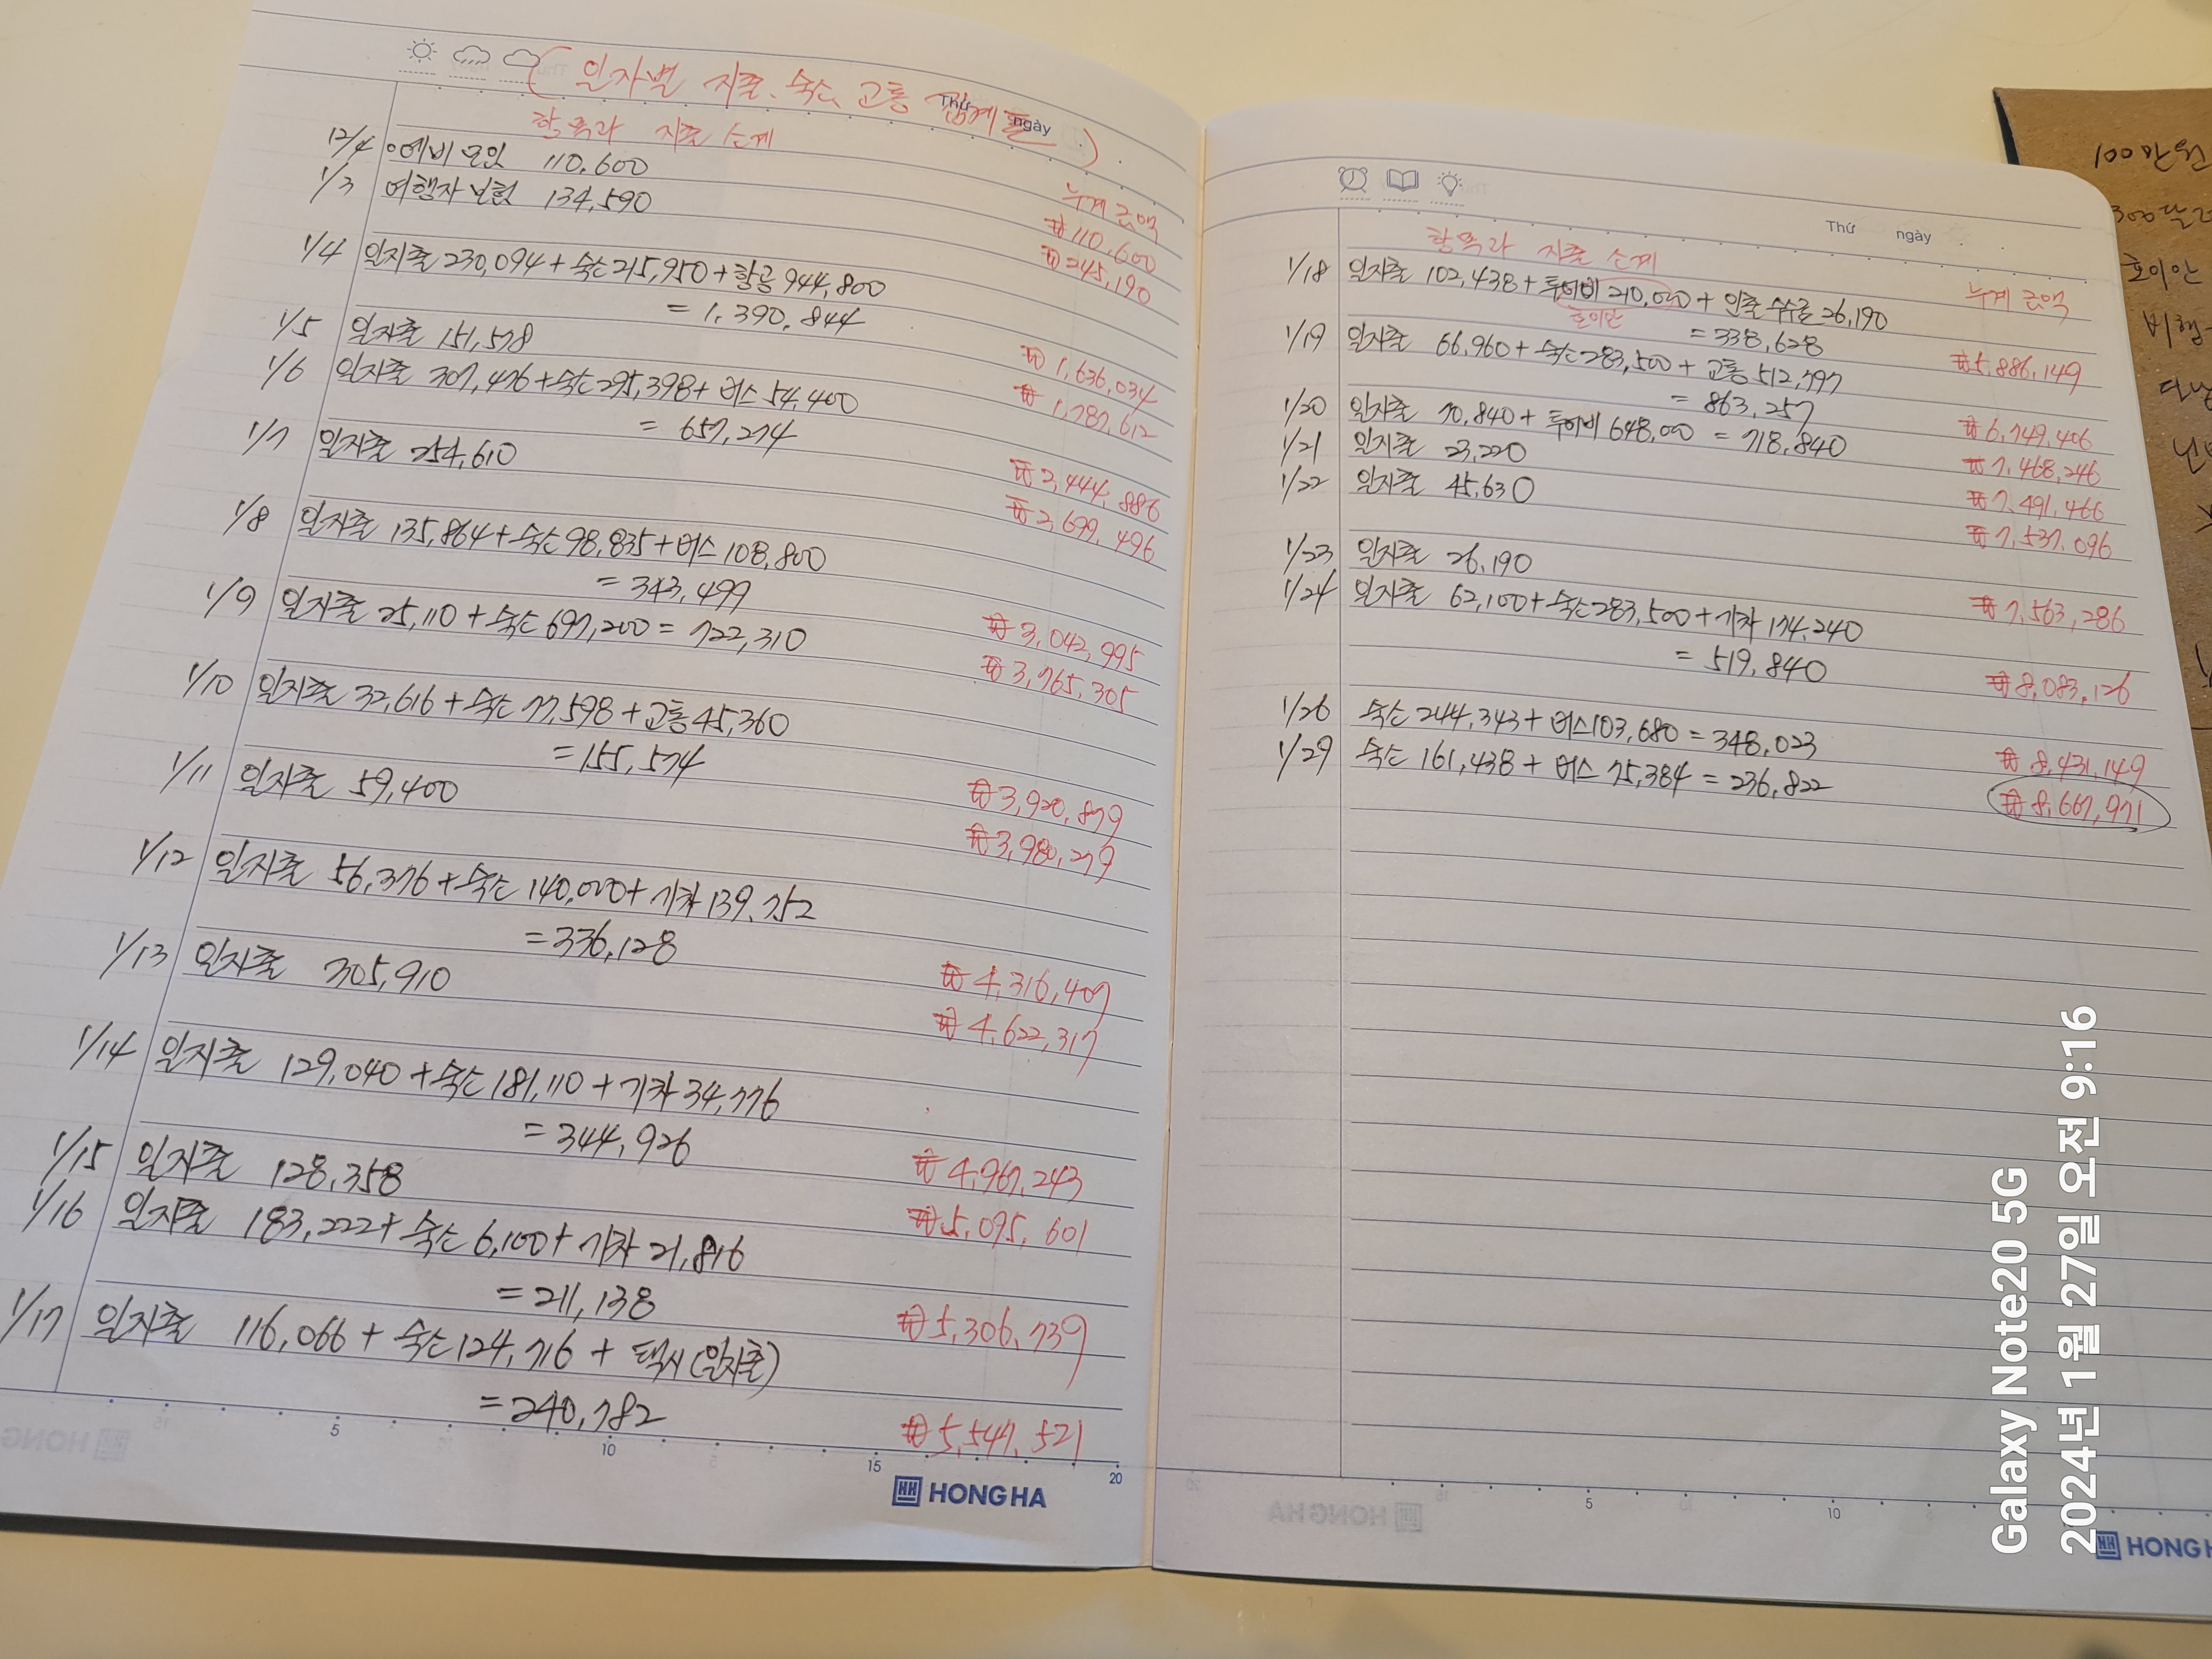 ( 일자별 지출、숙소、교통 집계표 )
Thứ ngày
항목과 지출 소계
누계금액
12/4 예비모임 110,600
₩110,600
1/3 여행자보험 134,590
₩245,190
1/4 일지출 230,094+숙소 215,950+항공 944,800
= 1,390,844
₩1,636,034
1/5 일지출 151,578
₩1,787,612
1/6 일지출 307,476+숙소 295,398+버스 54,400
= 657,274
₩2,444,886
1/7 일지출 254,610
₩2,699,496
1/8 일지출 135,864+숙소 98,835+버스 108,800
= 343,499
₩3,042,995
1/9 일지출 25,110+숙소 697,200= 722,310
₩3,765,305
1/10 일지출 32,616+숙소 77,598+교통 45,360
=155,574
₩3,920,879
1/11 일지출 59,400
₩3,980,279
1/12 일지출 56,376+숙소 140,000+기차 139,752
=336,128
₩4,316,407
1/13 일지출 305,910
₩4,622,317
1/14 일지출 129,040+숙소 181,110+기차 34,776
= 344,926
₩4,967,243
1/15 일지출 128,358
₩5,095,601
1/16 일지출 183,222+숙소 6,100+기차 21,816
=211,138
₩5,306,739
1/17 일지출 116,066+숙소 124,716+택시(일지출)
=240,782
₩5,547,521
5 10 15 20
HONG HA
Thứ ngày
항목과 지출 소계
누계금액
1/18 일지출 102,438+투어비 210,000+인출수수료 26,190
호이안
= 338,628
₩5,886,149
1/19 일지출 66,960+숙소 283,500+교통 512,797
= 863,257
₩6,749,406
1/20 일지출 70,840+투어비 648,000 = 718,840
₩7,468,246
1/21 일지출 23,220
₩7,491,466
1/22 일지출 45,630
₩7,537,096
1/23 일지출 26,190
₩7,563,286
1/24 일지출 62,100+숙소 283,500+기차 174,240
= 519,840
₩8,083,126
1/26 숙소 244,343+버스 103,680=348,023
₩8,431,149
1/29 숙소 161,438+버스 75,384=236,822
₩8,667,971
5 10
HONG H
호이안
Galaxy Note20 5G
2024년 1월 27일 오전 9:16